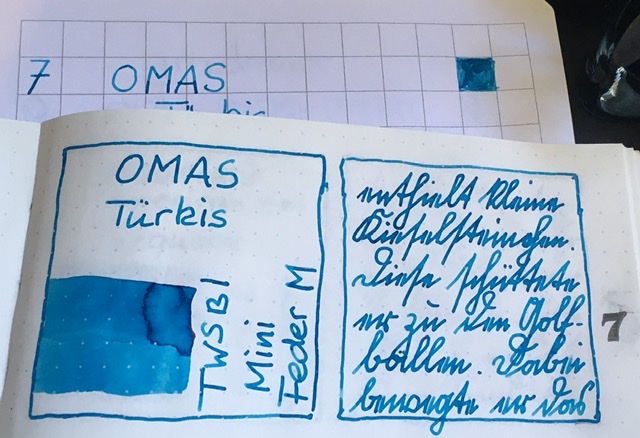 7 OMAS
Türkis
OMAS
Türkis
TWSBI
Mini
Feder M
enthielt kleine
Kieselsteinchen.
Diese schüttete
er zu den Golf-
bällen. Dabei
bewegte er das
7